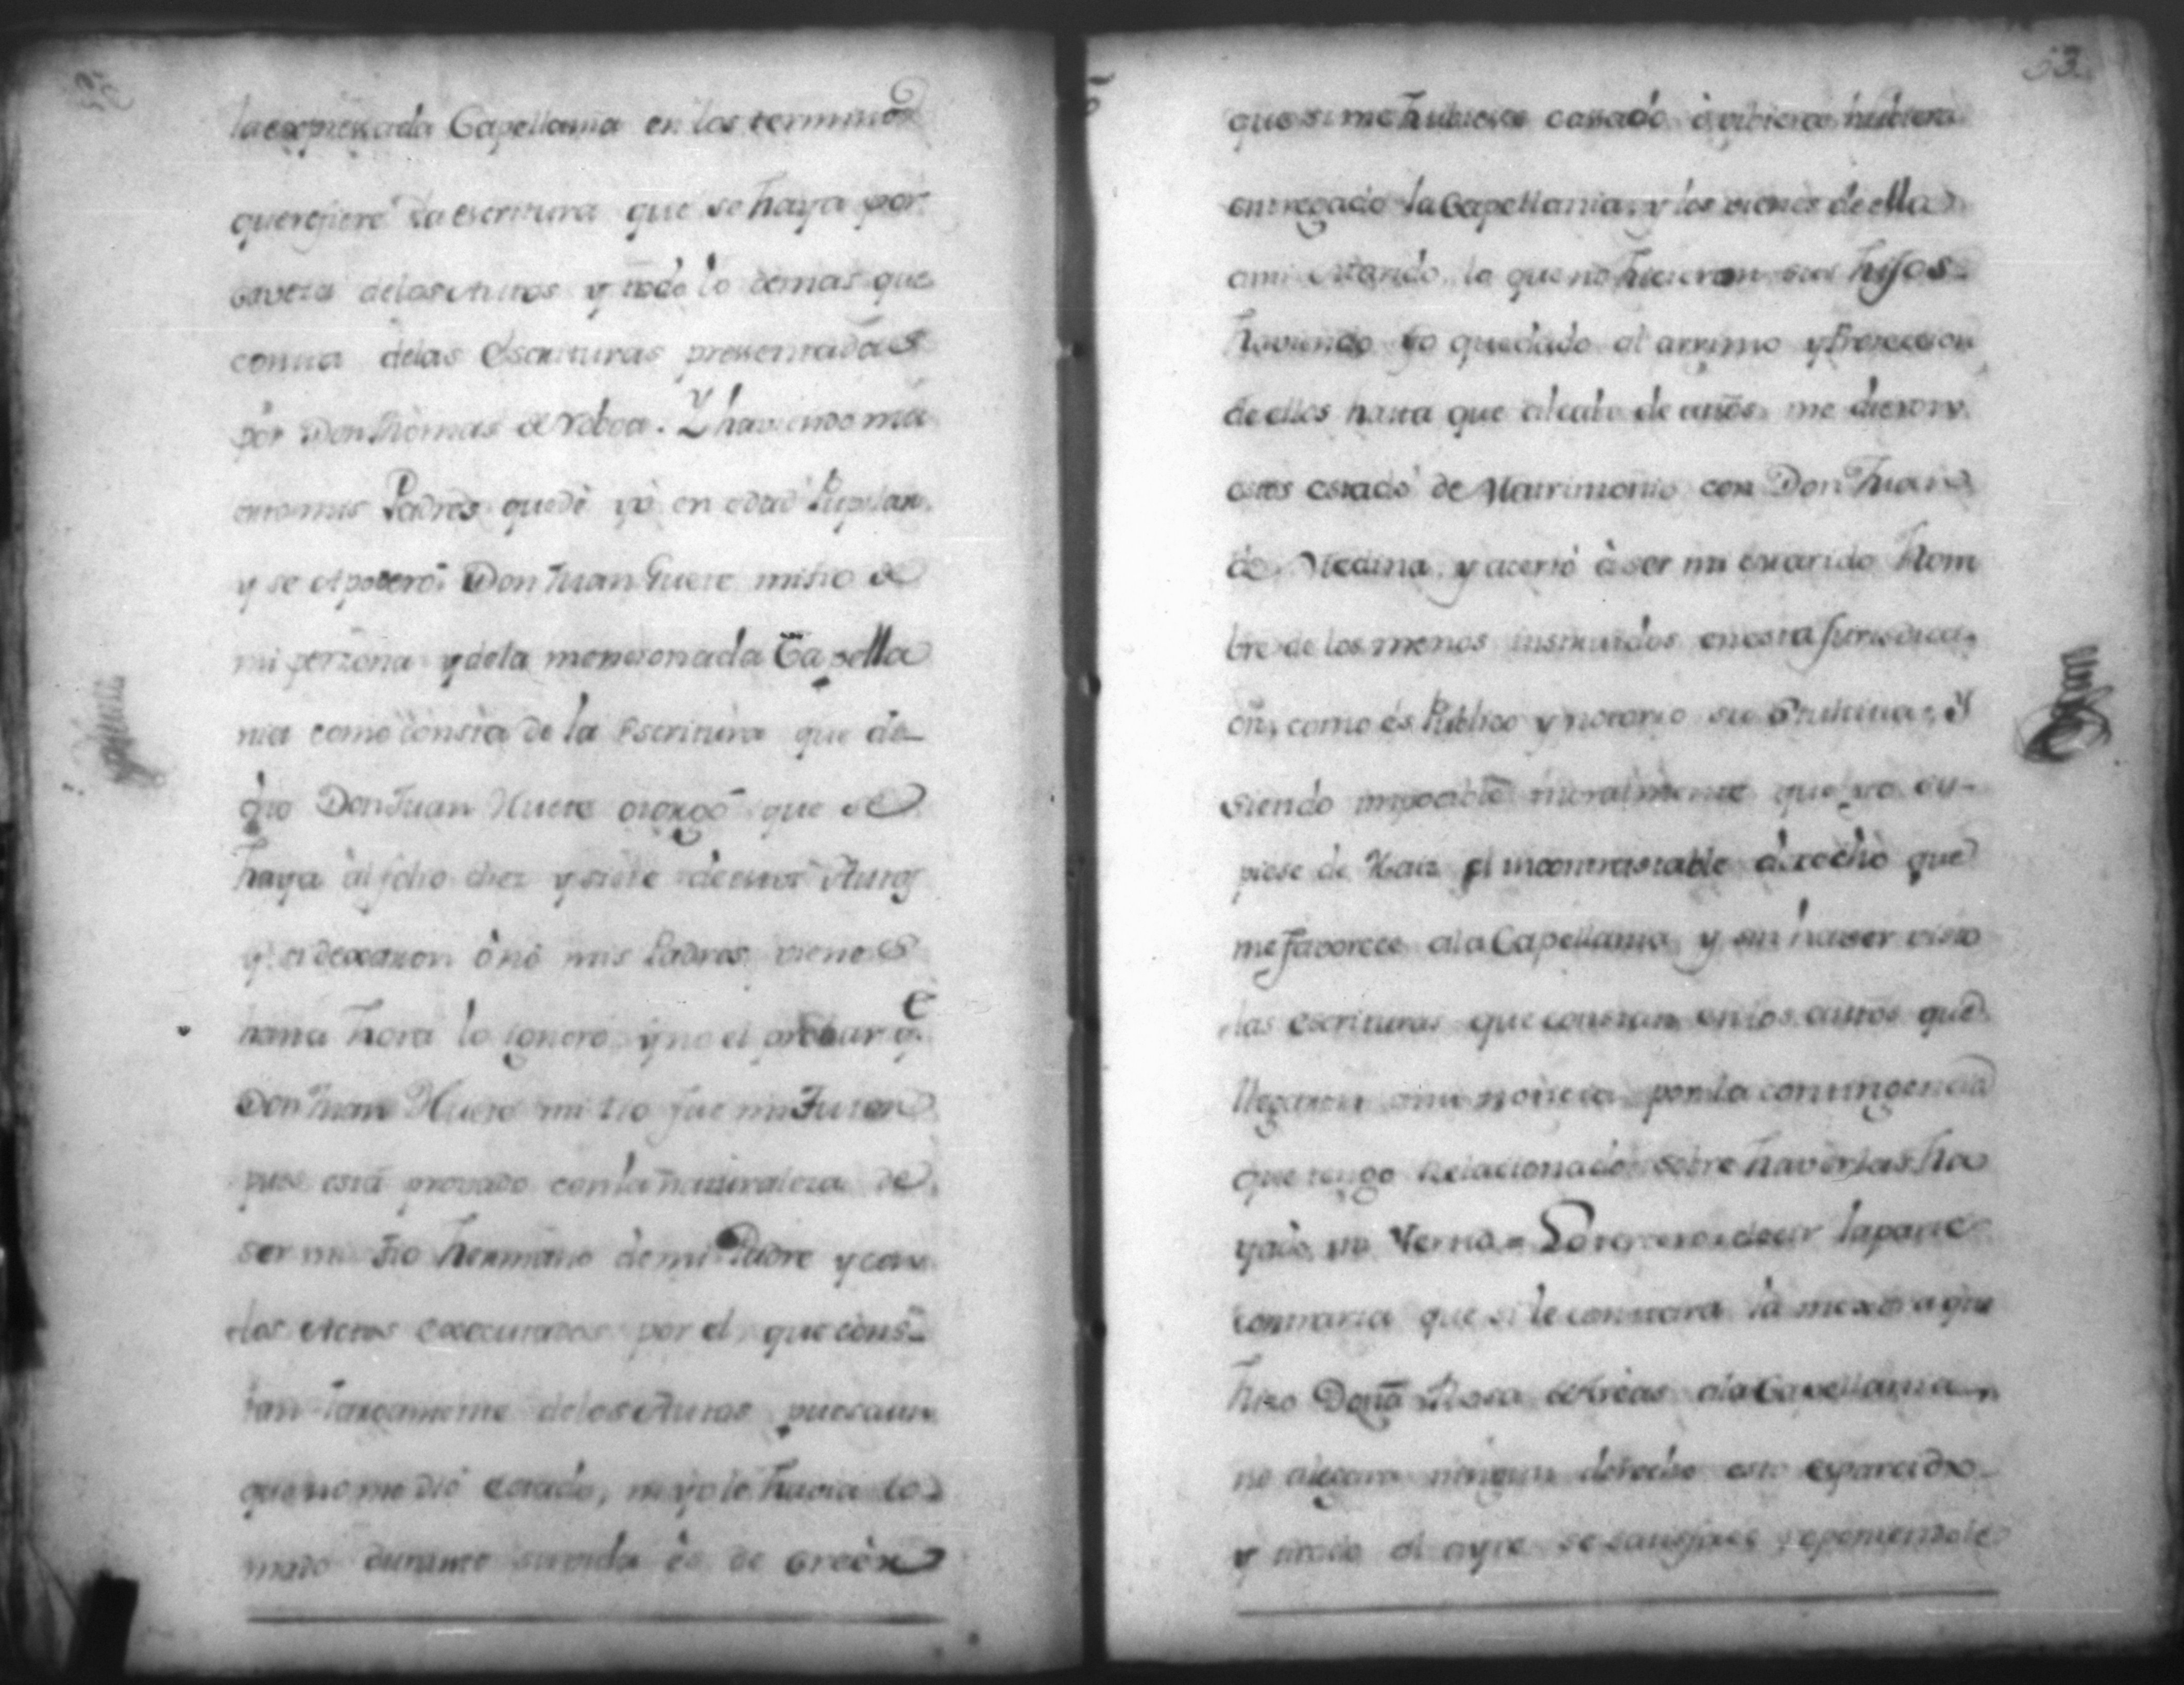 la expresada Capellania en los terminos
que refiere la escritura que se haya por
caveza de los Autos y todo lo demas que
consta de las Escrituras presentadas
por Don Thomas de Roboa. Y haviendo mu
erto mis Padres quedè yò en edad Pupilar,
y se apoderò Don Juan Huete mi tio de
mi perzona y de la mencionada Capella
nia como consta de la Escritura que de
cho Don Juan Huete otorgò que se
haya àl folio diez y siete de estos Autos
y si dexaron ò no mis Padres vienes
hasta hora lo ignoro, y no el probar q.e
Don Juan Huete mi tio fue mi Tutor
pues està provado con la naturaleza de
ser mi tio hermano de mi Padre y con
los Actos executados por el que cons-
tan largamente de los Autos pues aun
que no me diò estado, ni yo lo havia to-
mado durante su vida ès de creèr
53
que si me hubiese cassado è vibiera hubiera
entregado la Capellania, y los vienes de ella
a mi Marido, lo que no hicieron sus hijos
haviendo yo quedado al arrimo y Proteccion
de ellos hasta que al cabo de años me dieron
estos estado de Matrimonio con Don Juan
de Medina, y acertò à ser mi marido Hom
bre de los menos instruidos en esta Jurisdicci
on, como es Publico y notorio su Y
siendo imposible moralmente que yo su-
piese de Raiz el incontrastable derecho que
me favorece a la Capellania y sin haver visto
las escrituras que constan en los autos que
llegaron a mi noticia por la contingencia
que tengo Relacionado sobre haverlas ha
yado mi Yerno = Lo decir la parte
contraria que si le constara la mexora que
hizo Doña Rosa de Areas a la Capellania
no alegara ningun derecho esto esparcido
y al ayre se satisface reponiendole